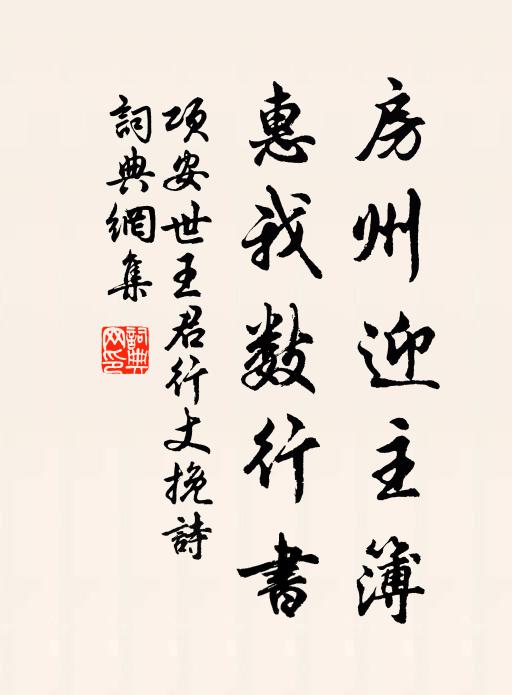 房州迎主簿
惠我数行書
項安世王君行丈挽詩
詞典網集
詞典網印